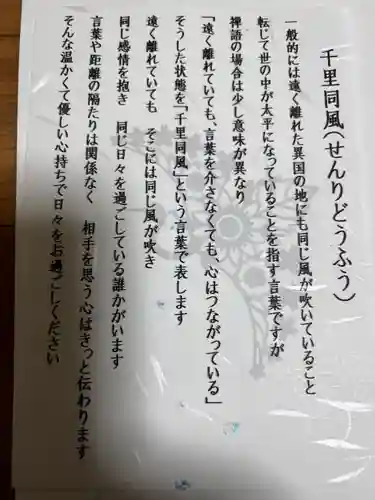 千里同風(せんりどうふう)
一般的には遠く離れた異国の地にも同じ風が吹いていること
転じて世の中が太平になっていることを指す言葉ですが
禅語の場合は少し意味が異なり
「遠く離れていても、言葉を介さなくても、心はつながっている」
そうした状態を「千里同風」という言葉で表します
遠く離れていても そこには同じ風が吹き
同じ感情を抱き 同じ日々を過ごしている誰かがいます
言葉や距離の隔たりは関係なく 相手を思う心はきっと伝わります
そんな温かくて優しい心持ちで日々をお過ごしください